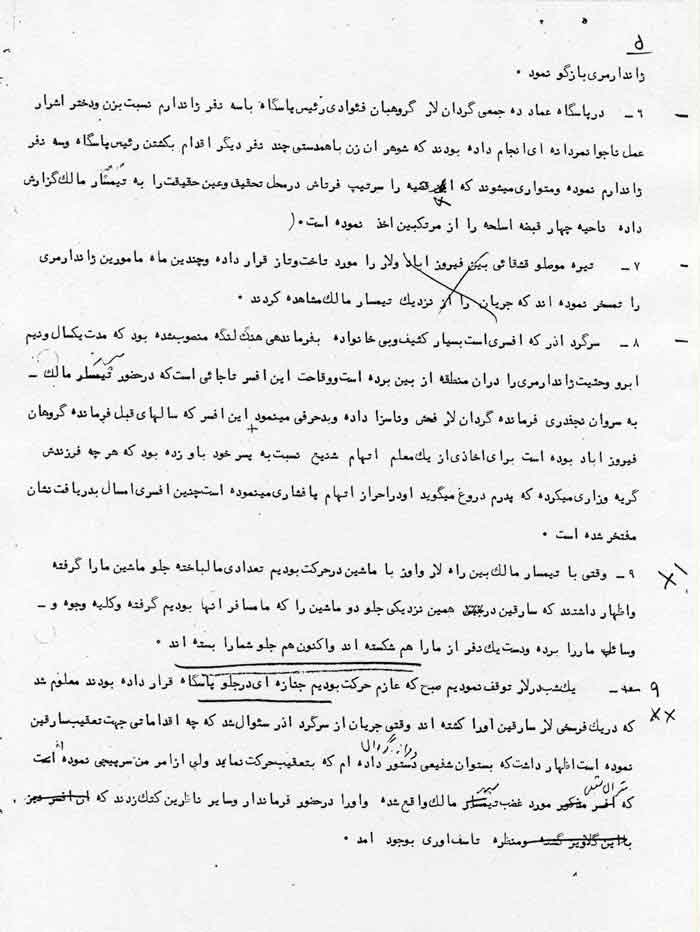 ۵
ژاندارمری بازگو نمود ۰
۶ - درپاسگاه عماد ده جمعی گردان لار گروهبان فئوادی رئیس پاسگاه باسه نفر ژاندارم نسبت بزن ودختر اشرار
عمل ناجوانمردانه ای انجام داده بودند که شوهر ان زن باهمدستی چند نفر دیگر اقدام بکشتن رئیس پاسگاه وسه نفر
ژاندارم نموده ومتواری میشوند که قضیه را سرتیپ فرتاش درمحل تحقیق وعین حقیقت را به تیمسار مالک گزارش
داده ناحیه چهار قبضه اسلحه را از مرتکبین اخذ نموده است ۰(
۷ - تیره موصلو قشقائی بین فیروز اباد ولار را مورد تاخت وتاز قرار داده وچندین ماه مامورین ژاندارمری
را تمسخر نموده اند که جریان را از نزدیک تیمسار مالک مشاهده کردند ۰
۸ - سرگرد اذر که افسری است بسیار کثیف وبی خانواده بفرماندهی هنگ لنگه منصوب شده بود که مدت یکسال ونیم
ابرو وحثیت ژاندارمری را دران منطقه از بین برده است ووقاحت این افسر تاجائی است که درحضور تیمسار مالک -
به سروان نجفدری فرمانده گردان لار فحش وناسزا داده وبدحرفی مینمود این افسر که سالهای قبل فرمانده گروهان
فیروز اباد بوده است برای اخاذی از یک معلم اتهام شنیع نسبت به پسر خود باو زده بود که هرچه فرزندش
گریه وزاری میکرده که پدرم دروغ میگوید اودراحراز اتهام پافشاری مینموده است چنین افسری امسال بدریافت نشان
مفتخر شده است ۰
۹ - وقتی با تیمسار مالک بین راه لار واوز با ماشین درحرکت بودیم تعدادی مالباخته جلو ماشین مارا گرفته
واظهار داشتند که سارقین در همین نزدیکی جلو دو ماشین را که مامسافر انها بودیم گرفته وکلیه وجوه و -
وسائل ماررا برده ودست یک نفر از مارا هم شکسته اند واکنون هم جلو شمارا بسته اند ۰
۹ - یک شب درلار توقف نمودیم صبح که عازم حرکت بودیم جنازه ای درجلو پاسگاه قرار داده بودند معلوم شد
که دریک فرسخی لار سارقین اورا کشته اند وقتی جریان از سرگرد اذر سئوال شد که چه اقداماتی جهت تعقیب سارقین
نموده است اظهار داشت که بستوان شفیعی دستور داده ام که بتعقیب حرکت نماید ولی ازامر من سرپیچی نموده است
که افسر مذکور مورد غضب تیمسار مالک واقع شده واورا درحضور فرماندار وسایر ناظرین کتک زدند که این افسر نیز
بااین گلاویز گشته ومنظره تاسف اوری بوجود امد ۰